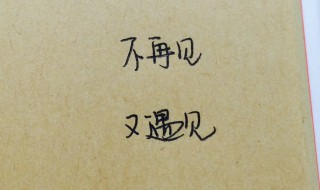 不再见
又遇见